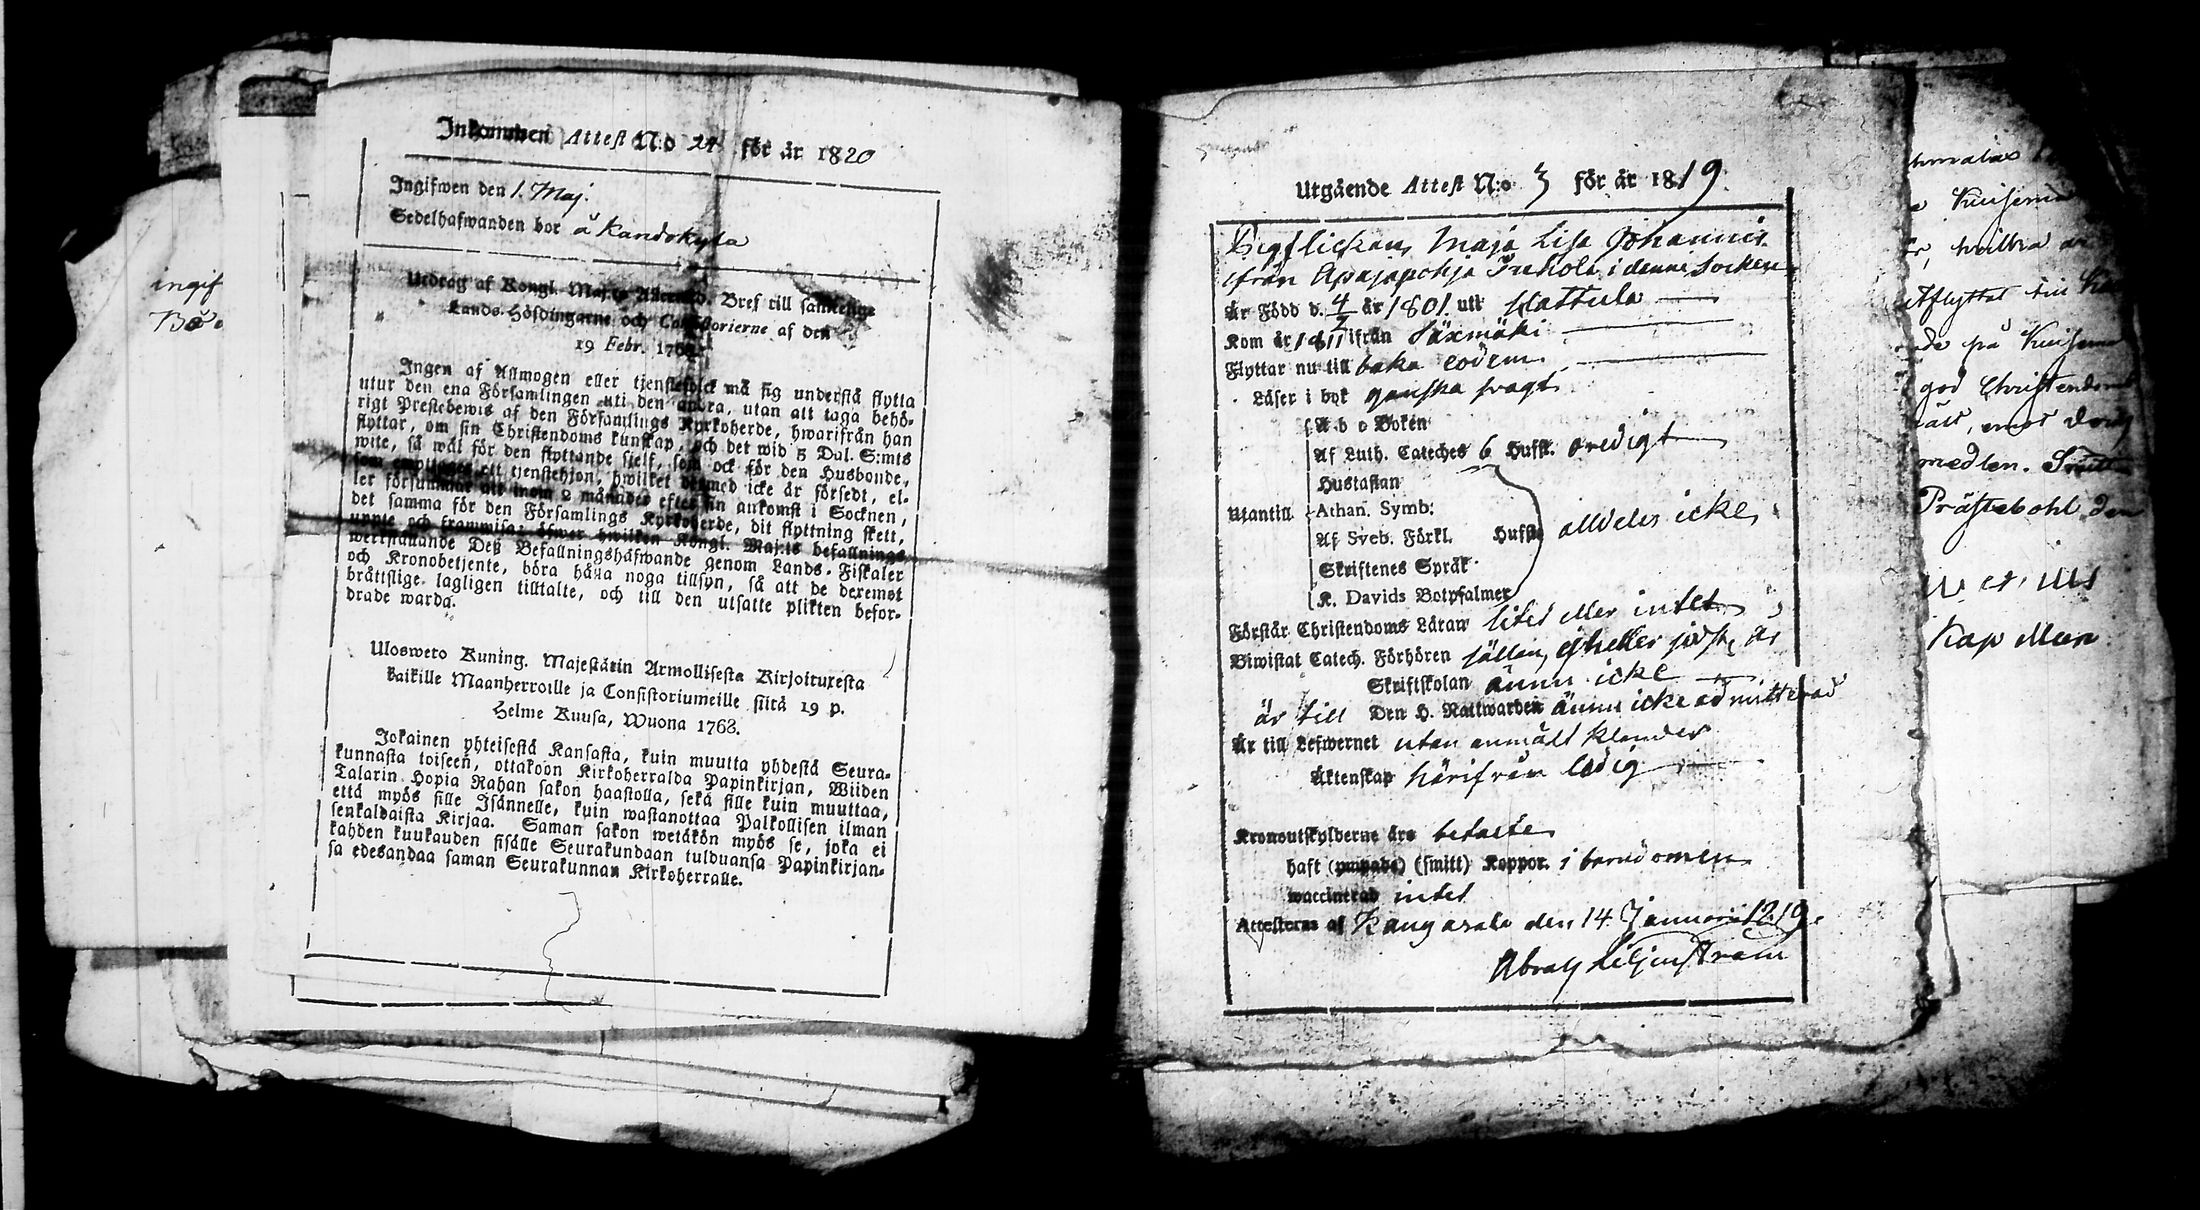 ingif
Inkommen Attest N:o 24 för år 1820
Ingifwen den 1. Maj.
Sedelhafwanden bor å Kandokyla
Utdrag af Kongl. Maj:ts Bref till samtelige
Lands-Höfdingarne och Consistorierne af den
19 Febr. 1768.
Ingen af Allmogen eller tjenstefolck må sig understå flytta
utur den ena Församlingen uti den andra, utan att taga behö-
rigt Prestebewis af den Församlings Kyrkoherde, hwarifrån han
flyttar, om sin Christendoms kunskap, och det wid 5 Dal. S:mts
wite, så wäl för den flyttande sjelf, som ock för den Husbonde,
som emottager ett tjenstehjon, hwilket dermed icke är försedt, el-
ler försummar att inom 2 månader efter sin ankomst i Socknen,
det samma för den Församlings Kyrkoherde, dit flyttning skett,
uppte och frammisa; öfwer hwilken Kongl. Maj:ts befallnings
werkställande Deß Befallningshafwande genom Lands-Fiskaler
och Kronobetjente, böra hålla noga tillsyn, så att de deremot
bråttslige lagligen tilltalte, och till den utsatte plikten befor-
drade warda.
Ulosweto Kuning. Majestätin Armollisesta Kirjoituxesta
kaikille Maanherroille ja Consistoriumeille siitä 19 p.
Helme Kuusa, Wuona 1768.
Jokainen yhteisestä Kansasta, kuin muutta yhdestä Seura-
kunnasta toiseen, ottakoon Kirkoherralda Papinkirjan, Wiiden
Talarin Hopia Rahan sakon haastolla, sekä sille kuin muuttaa,
että myös sille Isännelle, kuin wastanottaa Palkollisen ilman
senkaldaista Kirjaa. Saman sakon wetäkön myös se, joka ei
kahden kuukauden sisälle Seurakundaan tulduansa Papinkirjan-
sa edesandaa saman Seurakunnan Kirkoherralle.
Utgående Attest N:o 3 för år 1819.
Pigflickan, Maja Lisa Johannis.
ifrån Apajapohja i denne Socken
Är Född d. 4/2 år 1801. uti Hattula
Kom år 1811 ifrån Säxmäki
Flyttar nu till baka eodem
Läser i bok ganska swagt
A b c Boken
Af Luth. Cateches 6 Hufst. oredigt
Hustaflan
Utantill Athan. Symb:
Af Sveb. Förkl. Hufst. alldeles icke
Skriftenes Språk
K. Davids Botpsalmer
Förstår Christendoms Läran litet eller intet
Biwistat Catech. Förhören sällan,
Skriftskolan ännu icke
är till Den H. Nattwarden ännu icke admitterad
Är till Lefwernet utan anmält klander
Äktenskap härifrån ledig
Kronoutskylderne äro betalte
haft (smitt) Koppor. i barndomen
waccinerad intet
Attesteras af Kangasala den 14. Januarii 1819.
Abrah Liljenström
Kuisema
hwilka är
Aflyttat till
på
god Christendoms
Prästebohl den